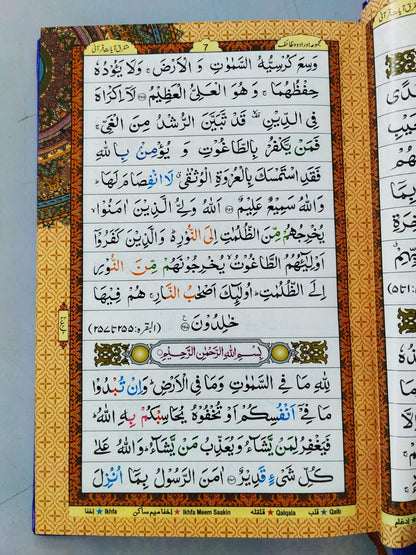 متفرق آیات قرآنی 7 مجموعہ اوراد و وظائف
وَسِعَ كُرْسِيُّهُ السَّمٰوٰتِ وَ الْاَرْضَ ۚ وَلَا يَـُٔوْدُهٗ
حِفْظُهُمَا ۚ وَ هُوَ الْعَلِيُّ الْعَظِيْمُ ﴿۲۵۵﴾ لَاۤ اِكْرَاهَ
فِي الدِّيْنِ ۙ۫ قَدْ تَّبَيَّنَ الرُّشْدُ مِنَ الْغَيِّ ۚ
فَمَنْ يَّكْفُرْ بِالطَّاغُوْتِ وَ يُؤْمِنْۢ بِاللّٰهِ
فَقَدِ اسْتَمْسَكَ بِالْعُرْوَةِ الْوُثْقٰى ۗ لَا انْفِصَامَ لَهَا ؕ
وَاللّٰهُ سَمِيْعٌ عَلِيْمٌ ﴿۲۵۶﴾ اَللّٰهُ وَلِيُّ الَّذِيْنَ اٰمَنُوْا ۙ
يُخْرِجُهُمْ مِّنَ الظُّلُمٰتِ اِلَى النُّوْرِ ؕ۬ وَالَّذِيْنَ كَفَرُوْۤا
اَوْلِيٰٓـُٔهُمُ الطَّاغُوْتُ ۙ يُخْرِجُوْنَهُمْ مِّنَ النُّوْرِ
اِلَى الظُّلُمٰتِ ؕ اُولٰٓئِكَ اَصْحٰبُ النَّارِ ۚ هُمْ فِيْهَا
خٰلِدُوْنَ ﴿۲۵۷﴾ (البقرہ: ۲۵۵ تا ۲۵۷)
بِسْمِ اللّٰهِ الرَّحْمٰنِ الرَّحِيْمِ
لِلّٰهِ مَا فِي السَّمٰوٰتِ وَمَا فِي الْاَرْضِ ؕ وَاِنْ تُبْدُوْا
مَا فِيْۤ اَنْفُسِكُمْ اَوْ تُخْفُوْهُ يُحَاسِبْكُمْ بِهِ اللّٰهُ ؕ
فَيَغْفِرُ لِمَنْ يَّشَآءُ وَيُعَذِّبُ مَنْ يَّشَآءُ ؕ وَاللّٰهُ عَلٰى
كُلِّ شَيْءٍ قَدِيْرٌ ﴿۲۸۴﴾ اٰمَنَ الرَّسُوْلُ بِمَاۤ اُنْزِلَ
اخفا ★ Ikhfa اخفا میم ساکن ★ Ikhfa Meem Saakin قلقلہ ★ Qalqala قلب ★ Qalb